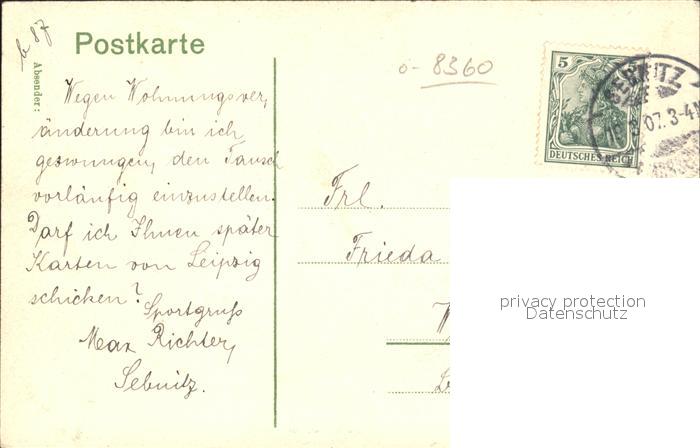 b 87
Postkarte
Absender:
o - 8360
5
DEUTSCHES REICH
SEBNITZ
07. 3-4
Wegen Wohnungsver,
änderung bin ich
geswungen, den Tausch
vorläufig einzustellen.
Darf ich Ihnen später
Karten von Leipzig
schicken?
Sportgruß
Max Richter,
Sebnitz.
Frl.
Frieda
privacy protection
Datenschutz